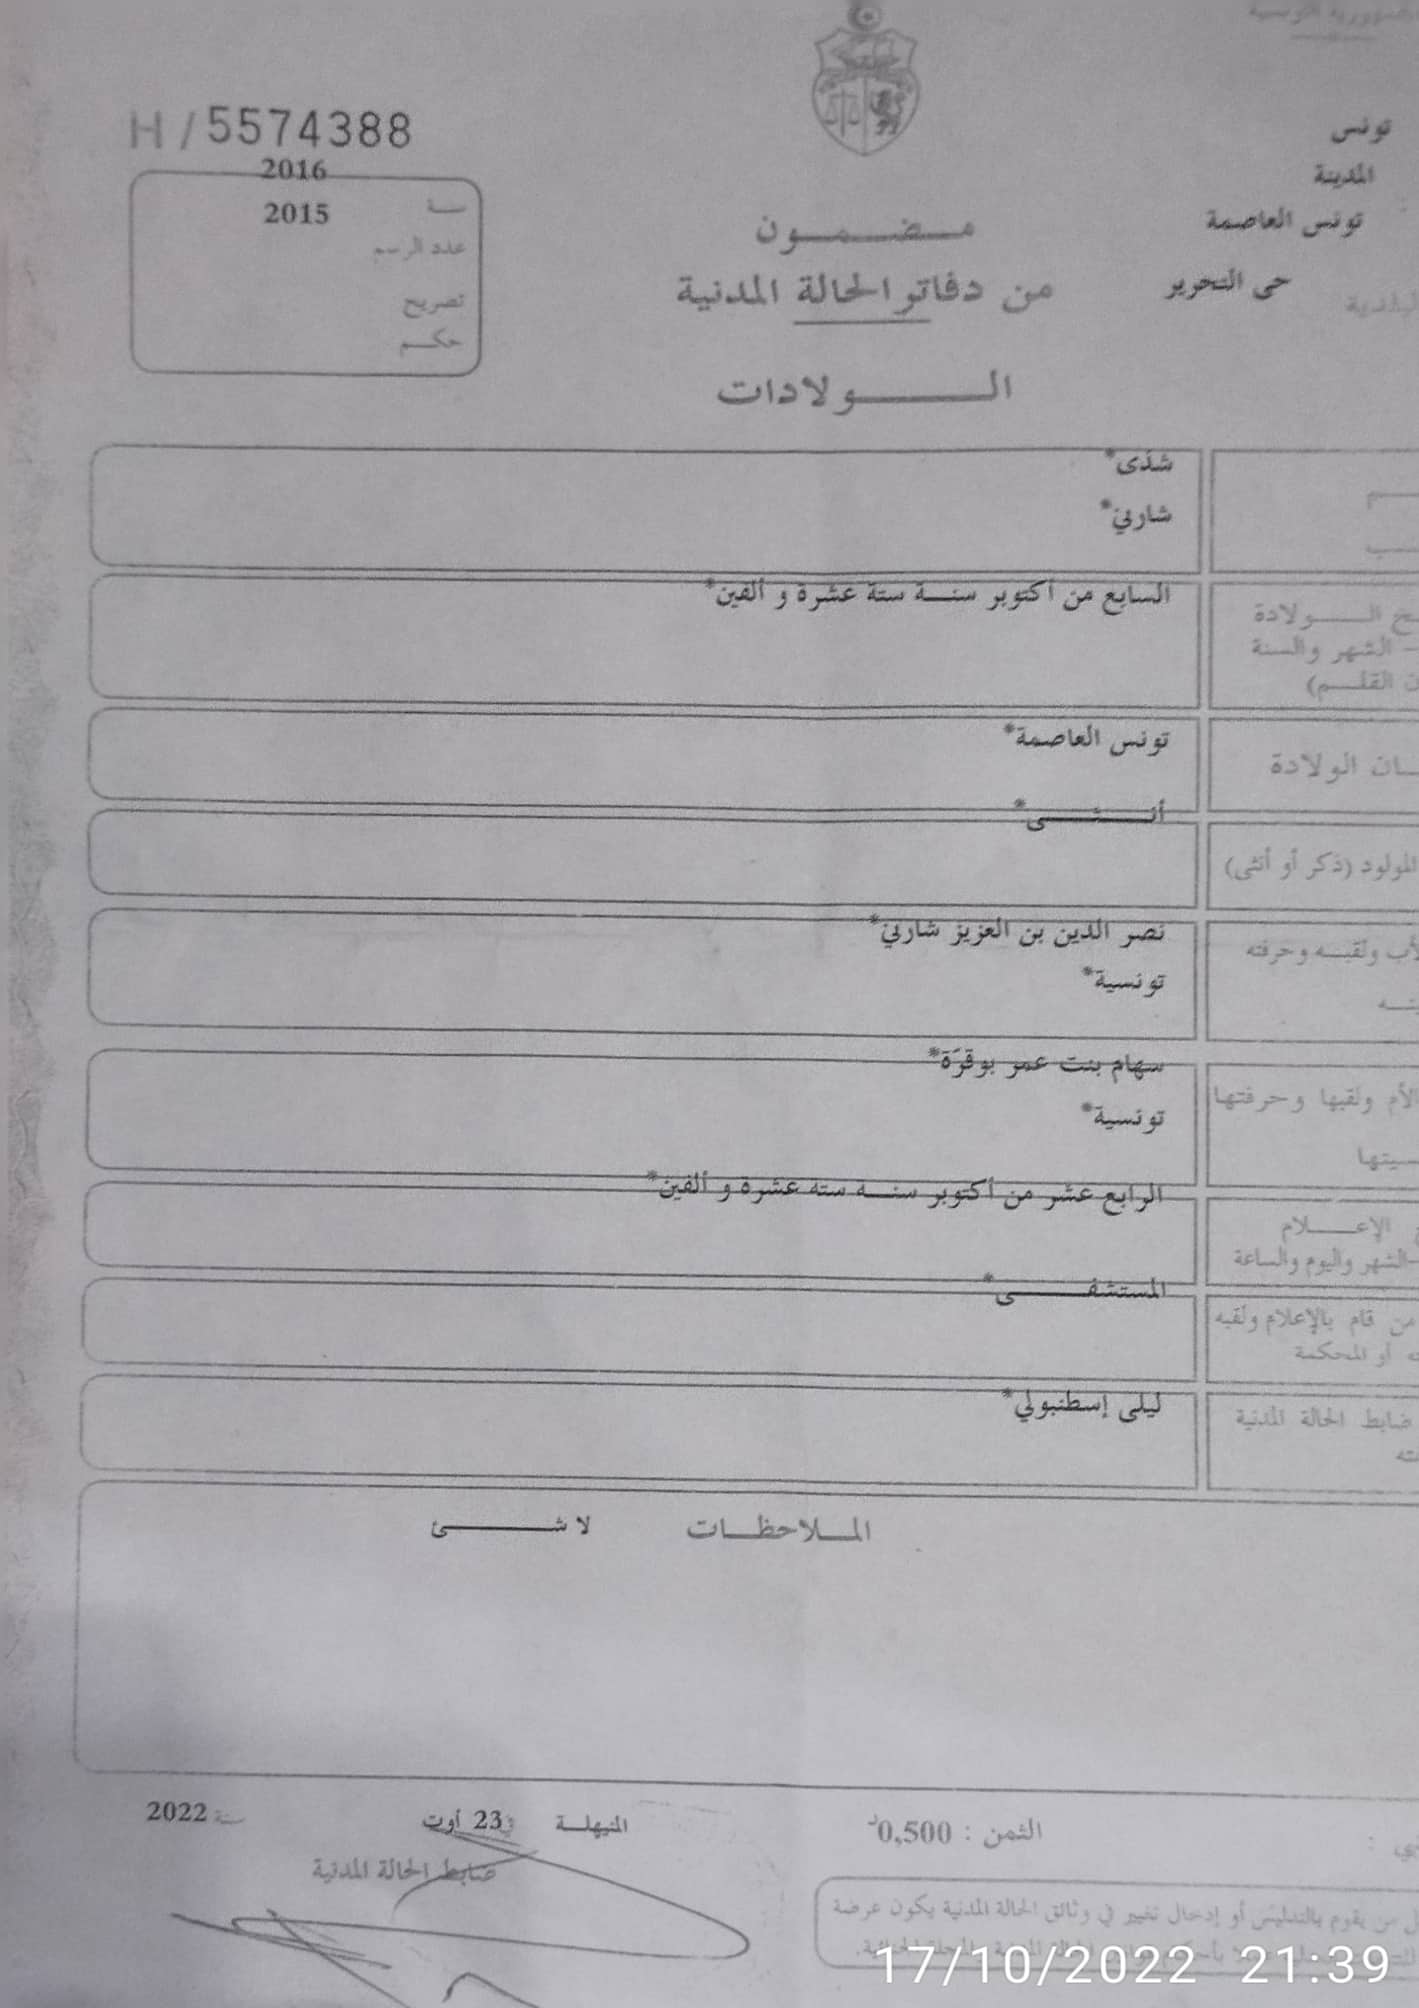 الجمهورية التونسية
تونس
المدينة
تونس العاصمة
حي التحرير
البلدية
H / 5574388
2016
سنة 2015
عدد الرسم
تصريح
حكم
مضمون
من دفاتر الحالة المدنية
الولادات
شذى*
شاربي*
السابع من أكتوبر سنة ستة عشرة و ألفين*
ـخ الولادة
- الشهر والسنة
ن القلم)
تونس العاصمة*
ـان الولادة
أنثى*
المولود (ذكر أو أنثى)
نصر الدين بن العزيز شاربي*
لأب ولقبه وحرفته
تونسية*
سهام بنت عمر بوقرّة*
الأم ولقبها وحرفتها
تونسية*
ـسيتها
الرابع عشر من أكتوبر سنة ستة عشرة و ألفين*
الإعلام
-الشهر واليوم والساعة
المستشفى*
من قام بالإعلام ولقبه
ـته أو المحكمة
ليلى إسطنبولي*
ضابط الحالة المدنية
ـته
الملاحظات لا شئ
الثمن : 0,500د
المنيهلة في 23 أوت سنة 2022
ضابط الحالة المدنية
ل من يقوم بالتدليس أو إدخال تغيير في وثائق الحالة المدنية يكون عرضة
17/10/2022 21:39